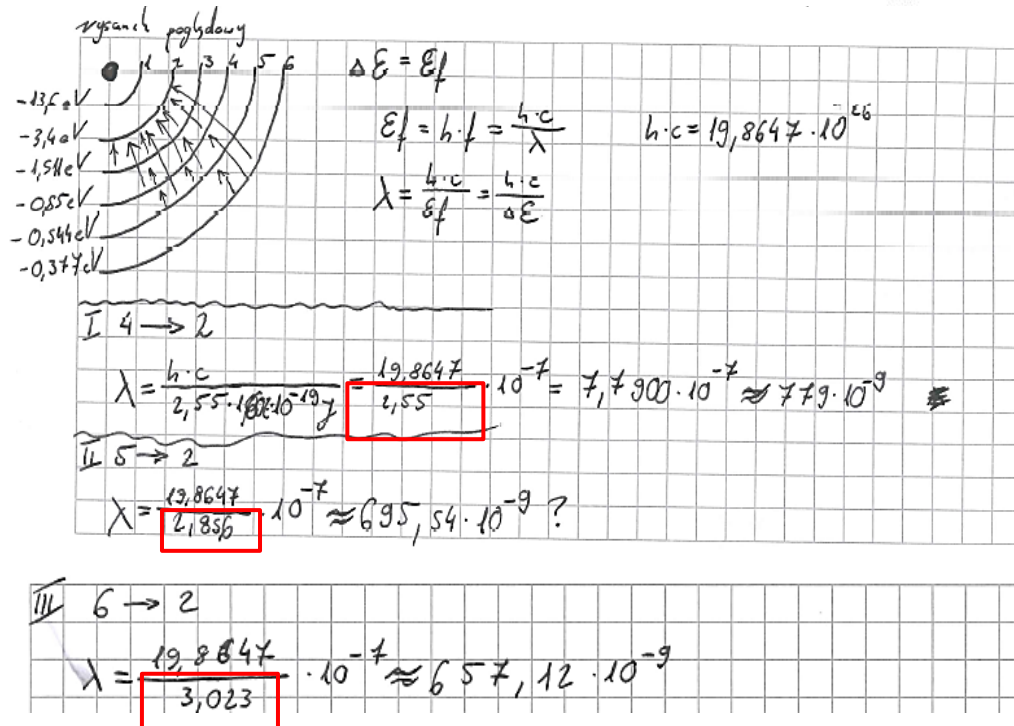 rysunek poglądowy
1 2 3 4 5 6
-13,6 eV
-3,4 eV
-1,511 eV
-0,85 eV
-0,544 eV
-0,377 eV
ΔE = Ef
Ef = h·f = h·c/λ
h·c = 19,8647·10^-26
λ = h·c/Ef = h·c/ΔE
I 4 → 2
λ = h·c/2,55·10^-19 J = 19,8647/2,55 ·10^-7 = 7,7900·10^-7 ≈ 779·10^-9
II 5 → 2
λ = 19,8647/2,856 ·10^-7 ≈ 695,54·10^-9 ?
III 6 → 2
λ = 19,8647/3,023 ·10^-7 ≈ 657,12·10^-9